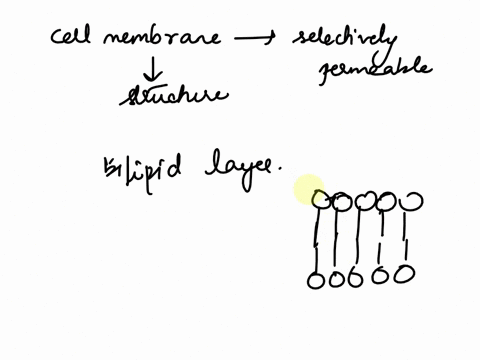 cell membrane → selectively
permeable
↓
structure
Bilipid layer.